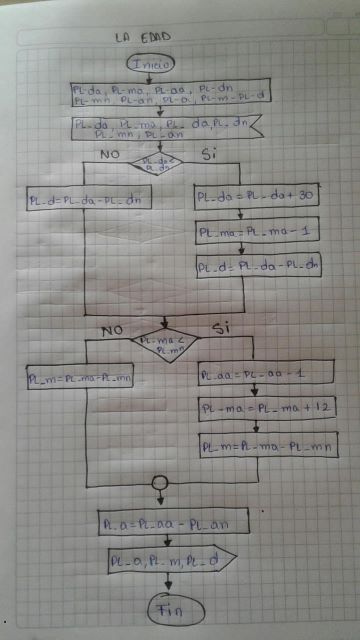 LA EDAD
Inicio
PL-da, PL-ma, PL-aa, PL-dn
PL-mn, PL-an, PL-a, PL-m-PL-d
PL-da, PL-ma, PL-da, PL-dn
PL-mn, PL-an
NO
PL-da<
PL-dn
Si
PL-d=PL-da-PL-dn
PL-da=PL-da+30
PL-ma=PL-ma-1
PL-d=PL-da-PL-dn
NO
PL-ma<
PL-mn
Si
PL-m=PL-ma-PL-mn
PL-aa=PL-aa-1
PL-ma=PL-ma+12
PL-m=PL-ma-PL-mn
PL-a=PL-aa-PL-an
PL-a, PL-m, PL-d
Fin